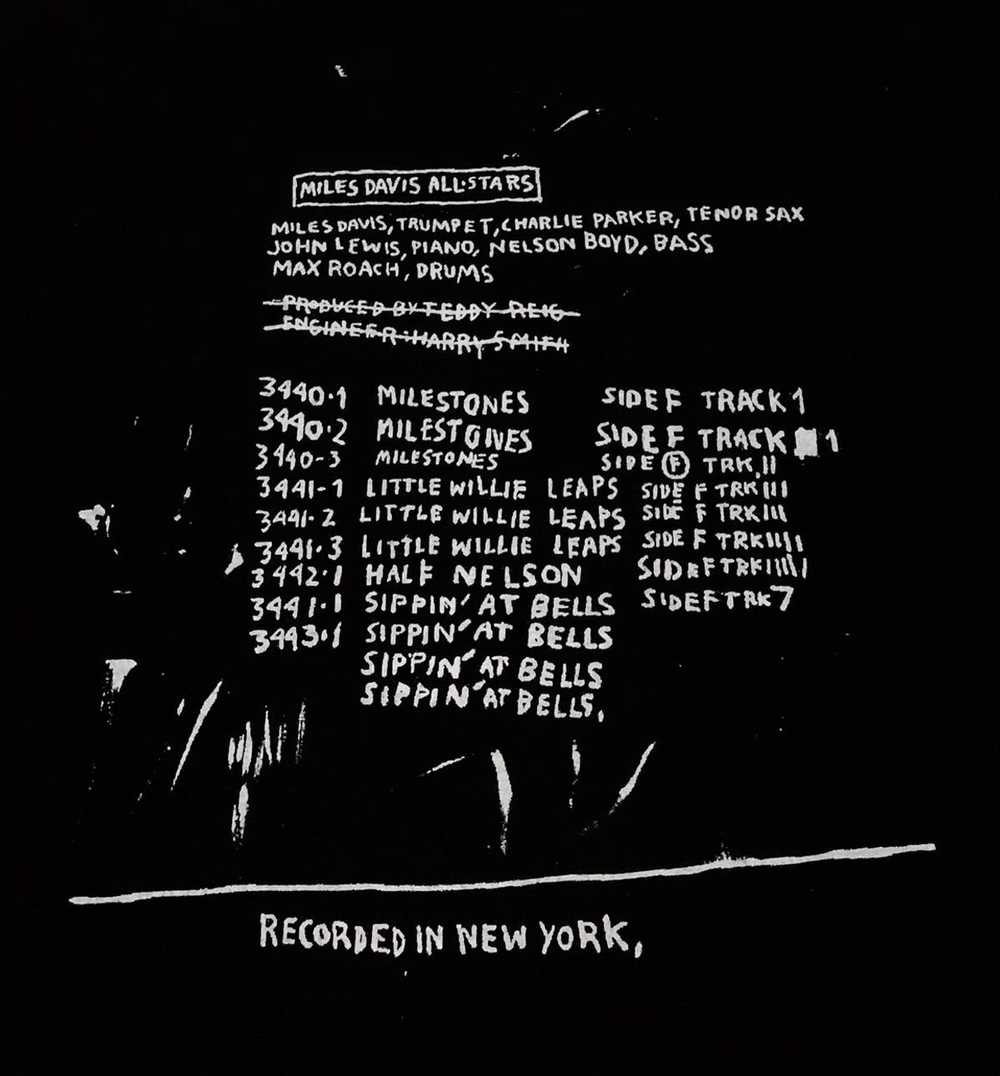 MILES DAVIS ALL·STARS
MILES DAVIS, TRUMPET, CHARLIE PARKER, TENOR SAX
JOHN LEWIS, PIANO, NELSON BOYD, BASS
MAX ROACH, DRUMS
PRODUCED BY TEDDY REIG
ENGINEER: HARRY SMITH
3440·1 MILESTONES SIDE F TRACK 1
3440·2 MILESTONES SIDE F TRACK 1
3440-3 MILESTONES SIDE F TRK.II
3441-1 LITTLE WILLIE LEAPS SIDE F TRK III
3441·2 LITTLE WILLIE LEAPS SIDE F TRK III
3441·3 LITTLE WILLIE LEAPS SIDE F TRK IIIII
3442·1 HALF NELSON SIDE F TRK IIIIII
3441·1 SIPPIN' AT BELLS SIDE F TRK 7
3443·1 SIPPIN' AT BELLS
SIPPIN' AT BELLS
SIPPIN' AT BELLS.
RECORDED IN NEW YORK,